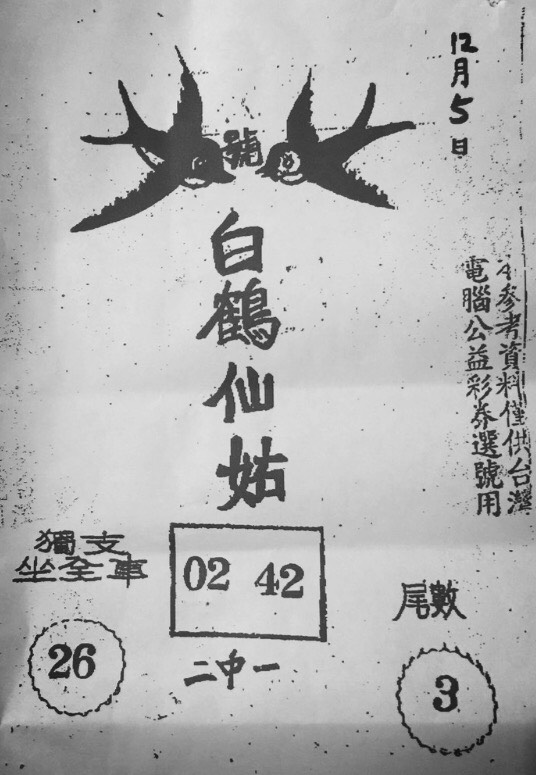 12月5日
號
白鶴仙姑
參考資料僅供台灣
電腦公益彩券選號用
獨支
坐全車
02 42
尾數
26
二中一
3